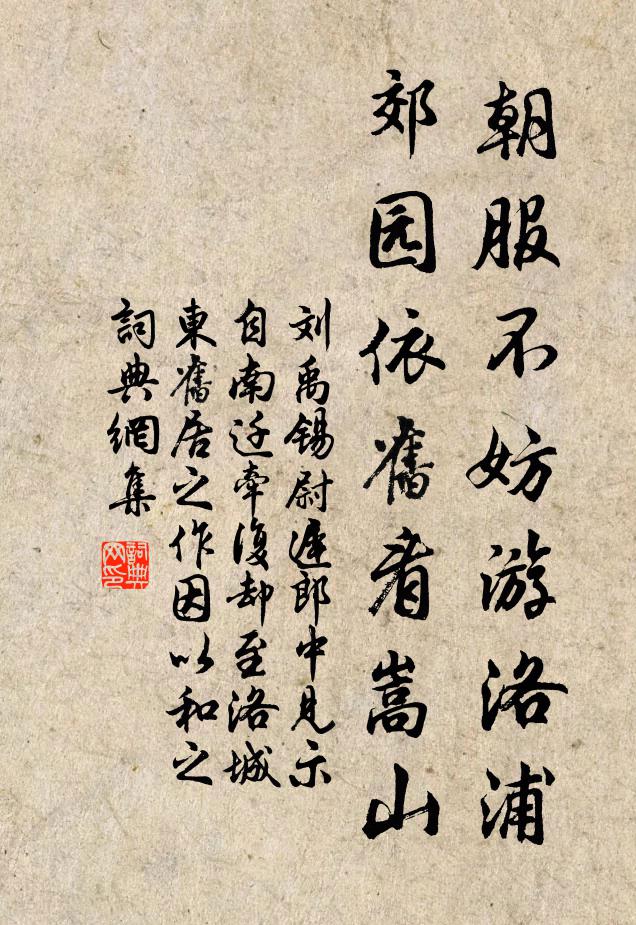 朝服不妨游洛浦
郊园依舊看嵩山
刘禹锡尉遲郎中見示
自南迁牵復却至洛城
東舊居之作因以和之
詞典網集
詞典
网印